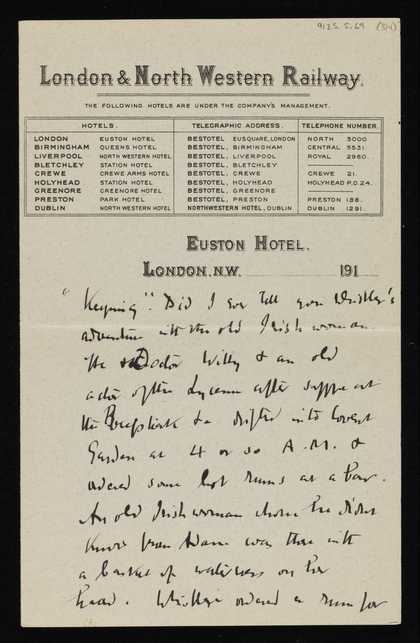 9125. S. 69
London & North Western Railway.
THE FOLLOWING HOTELS ARE UNDER THE COMPANY'S MANAGEMENT.
HOTELS. TELEGRAPHIC ADDRESS. TELEPHONE NUMBER.
LONDON EUSTON HOTEL BESTOTEL, EUSQUARE, LONDON NORTH 3000
BIRMINGHAM QUEENS HOTEL BESTOTEL, BIRMINGHAM CENTRAL 5531
LIVERPOOL NORTH WESTERN HOTEL BESTOTEL, LIVERPOOL ROYAL 2960
BLETCHLEY STATION HOTEL BESTOTEL, BLETCHLEY
CREWE CREWE ARMS HOTEL BESTOTEL, CREWE CREWE 21.
HOLYHEAD STATION HOTEL BESTOTEL, HOLYHEAD HOLYHEAD P.O.24.
GREENORE GREENORE HOTEL BESTOTEL, GREENORE
PRESTON PARK HOTEL BESTOTEL, PRESTON PRESTON 188.
DUBLIN NORTH WESTERN HOTEL NORTHWESTERN HOTEL, DUBLIN DUBLIN 1291.
EUSTON HOTEL.
LONDON. N.W. 191
"Keeping". Did I ever tell you Whistler's
adventure with the old Irish woman
He & Doctor Willy & an old
actor of the Lyceum after supper at
the Beefsteak & drifted into Covent
Garden at 4 or so A.M. &
ordered some hot rums at a bar.
An old Irish woman whom he didnt
know from Adam was there with
a basket of watercress on her
head. Whistler ordered a rum for